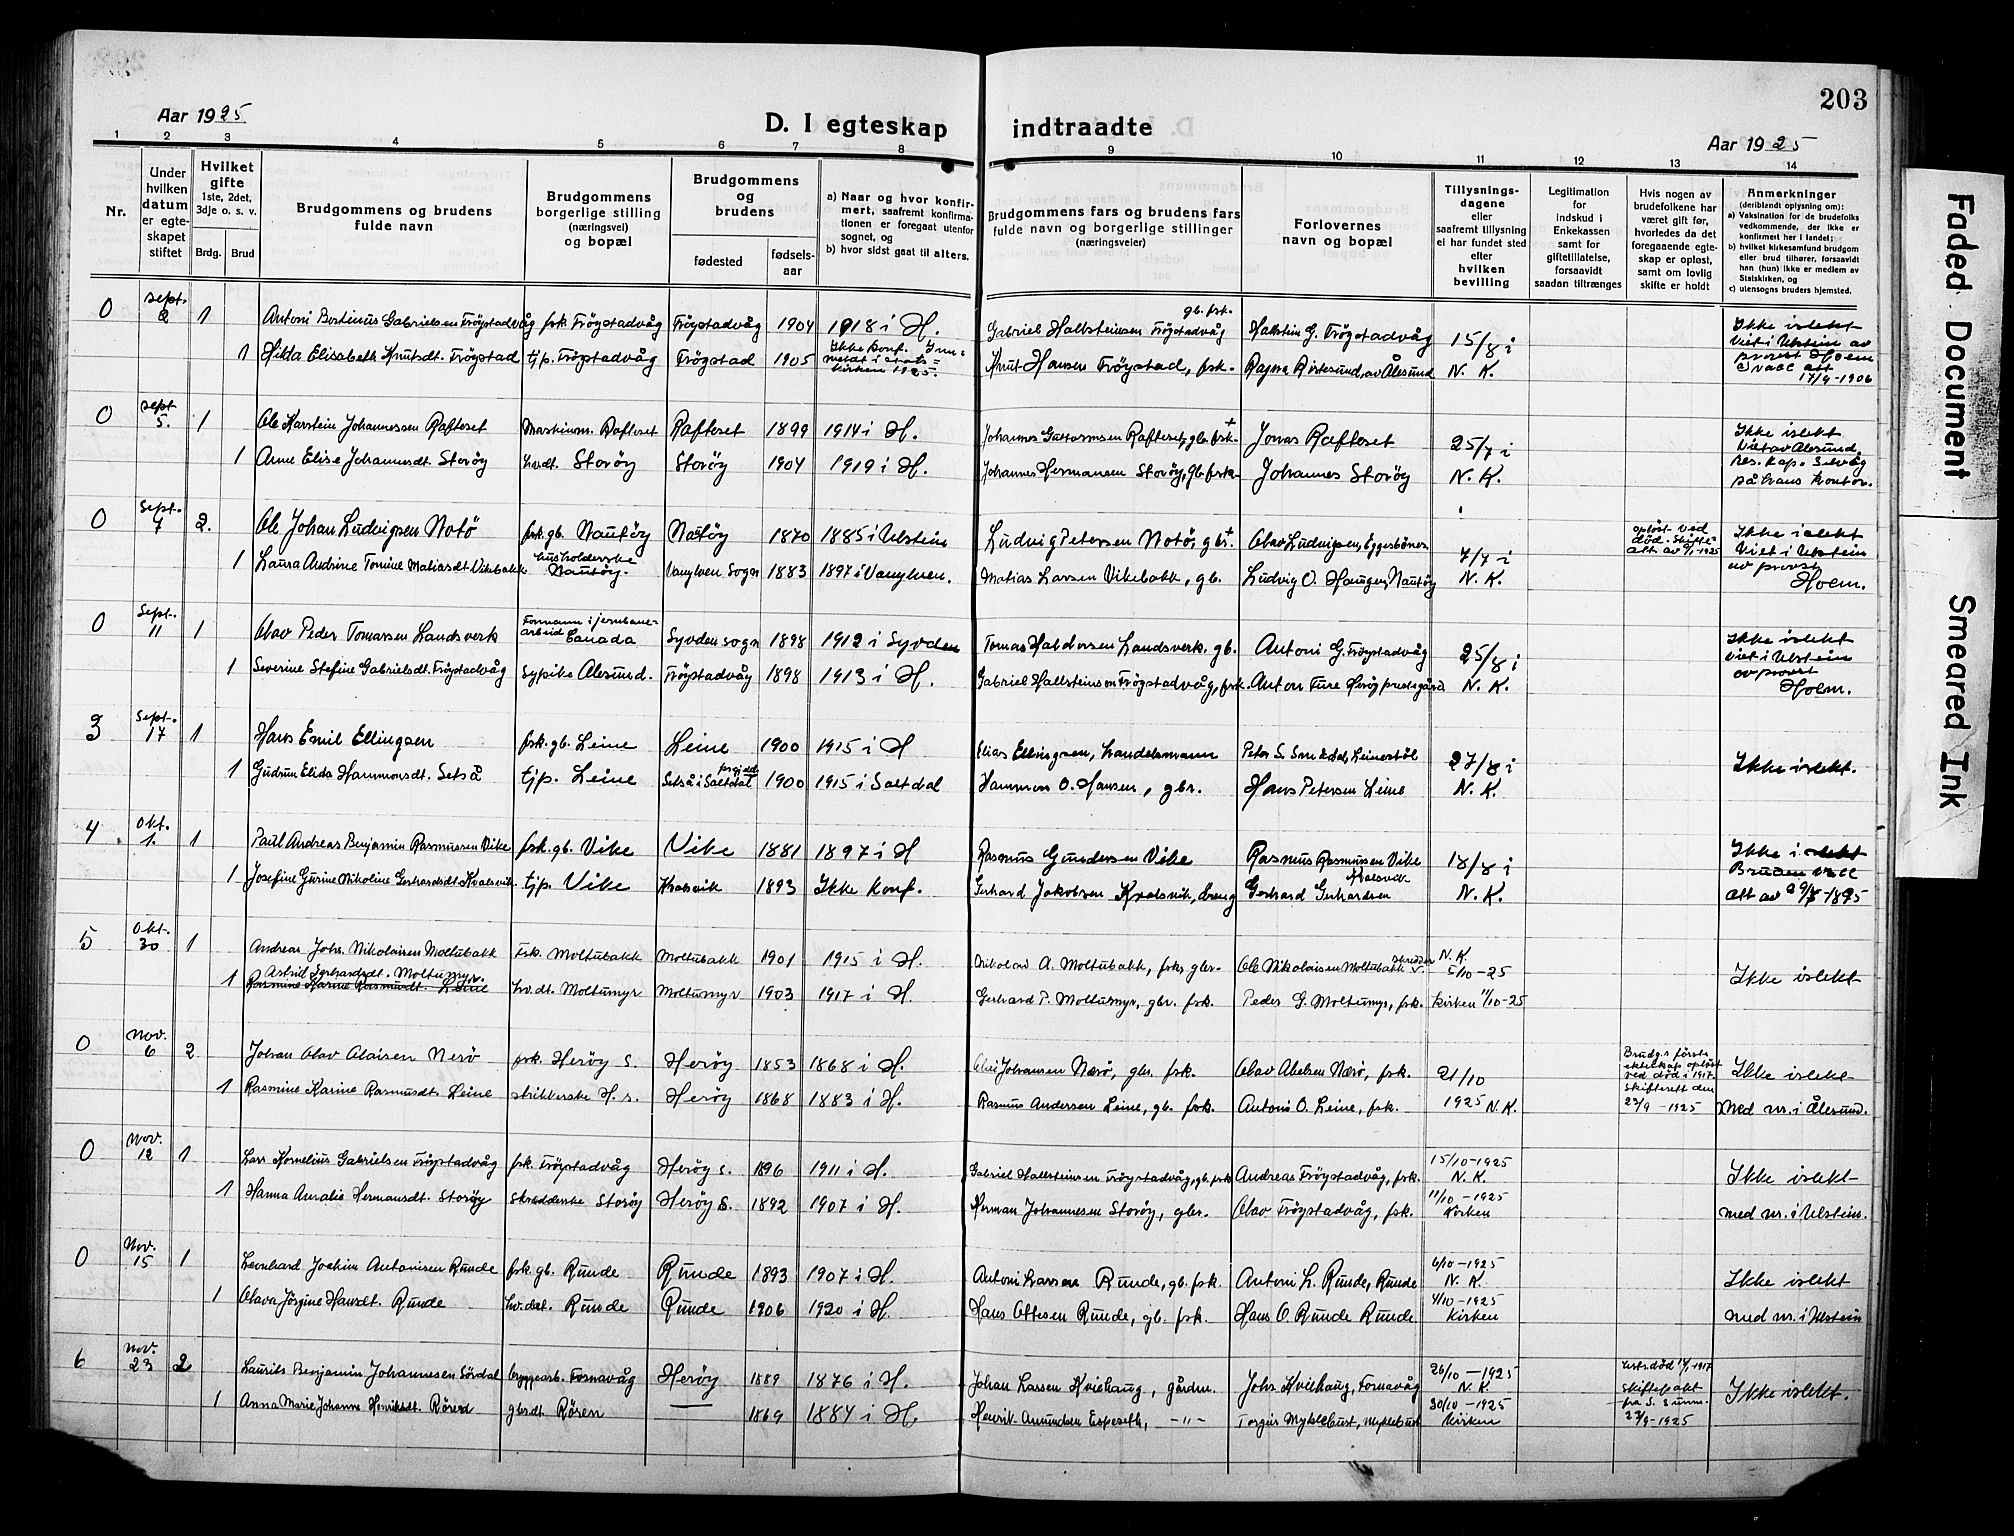 203
Aar 1925.
D. I egteskap indtraadte
Aar 1925
1 2 3 4 5 6 7 8 9 10 11 12 13 14
Nr.
Under hvilken datum er egteskapet stiftet
Hvilket gifte
1ste, 2det, 3dje o. s. v.
Brdg. Brud
Brudgommens og brudens fulde navn
Brudgommens borgerlige stilling (næringsvei) og bopæl
Brudgommens og brudens
fødested
fødsels-aar
a) Naar og hvor konfirmert, saafremt konfirmationen er foregaat utenfor sognet, og
b) hvor sidst gaat til alters.
Brudgommens fars og brudens fars fulde navn og borgerlige stillinger (næringsveier)
Forlovernes navn og bopæl
Tillysningsdagene eller saafremt tillysning ei har fundet sted efter hvilken bevilling
Legitimation for indskud i Enkekassen samt for giftetillatelse, forsaavidt saadan tiltrænges
Hvis nogen av brudefolkene har været gift før, hvorledes da det foregaaende egteskap er opløst, samt om lovlig skifte er holdt
Anmerkninger
(deriblandt oplysning om):
a) Vaksination for de brudefolks vedkommende, der ikke er konfirmert her i landet;
b) hvilket kirkesamfund brudgom eller brud tilhører, forsaavidt han (hun) ikke er medlem av Statskirken, og
c) utensogns bruders hjemsted.
0 Sept. 2 1 Antoni Bertinus Gabrielsen Frøystadvåg fsk. Frøystadvåg Frøystadvåg 1904 1918 i H. Gabriel Hallsteinsen Frøystadvåg gb. fsk. Hallstein G. Frøystadvåg 15/8 i N. K. Ikke islekt Viet i Ulstein av prost Hoem
1 Hilda Elisabeth Knutsdt. Frøystad tjp. Frøystadvåg Frøystad 1905 Ikke konf. Innmeldt i stats=kirken 1925. Knut Hansen Frøystad, fsk. Ragna Ristesund, av Ålesund vacc att 17/9-1906
0 Sept 5. 1 Ole Karstein Johannessen Rafteset Maskinm. Rafteset Rafteset 1899 1914 i H. Johannes Guttormsen Rafteset, gb. fsk. + Jonas Rafteset 25/7 i N. K. Ikke islekt Viet av Ålesund. Res. kap. Selvåg på hans kontor.
1 Anne Elise Johannesdt. Storøy hvdt. Storøy Storøy 1904 1919 i H. Johannes Hermansen Storøy, gb. fsk. Johannes Storøy
0 Sept. 7 2. Ole Johan Ludvigsen Notø fsk. gb. Nautøy Nautøy 1870 1885 i Ulstein Ludvig Petersen Notø, gb. + Olav Ludvigsen, Eggesbønes 7/7 i N. K. opløst ved død. Skifte=att av 7/1-1925 Ikke islekt Viet i Ulstein av prost Hoem.
1 Laura Andrine Tomine Matiasdt Vikebakk husholderske Nautøy. Vanylven Sogn 1883 1897 i Vanylven. Matias Larsen Vikebakk, gb. Ludvig O. Haugen, Nautøy
0 Sept. 11 1 Olav Peder Tomassen Landsverk Formann i jernbane-arbeid Canada Syvden sogn 1898 1912 i Syvden Tomas Haldorsen Landsverk. gb. Antoni G. Frøystadvåg 25/8 i N. K. Ikke islekt Viet i Ulstein av prost Hoem.
1 Severine Stefine Gabrielsdt. Frøystadvåg Sypike Ålesund. Frøystadvåg 1898 1913 i H. Gabriel Hallsteinsen Frøystadvåg, fsk. Anton Fure Herøy prestegård
3 Sept. 17 1 Hans Emil Ellingsen fsk. gb. Leine Leine 1900 1915 i H Elias Ellingsen, handelsmann Peter S. Leinestøl 27/8 i N. K. Ikke islekt.
1 Gudrun Elida Hammonsdt. Setså tjp. Leine Setså i Saltdal 1900 1915 i Saltdal Hammon O. Hansen, gbr. Hans Petersen Leine
4 Okt. 1. 1 Paul Andreas Benjamin Rasmussen Vike fsk. gb. Vike Vike 1881 1897 i H Rasmus Gundersen Vike Rasmus Rasmussen Vike 18/8 i N. K. Ikke islekt Bruden vacc att av 29/8-1895
1 Josefine Gurine Nikoline Gerhardsdt. Kvalsvik tjp. Vike Kvalsvik 1893 Ikke konf. Gerhard Jakobsen Kvalsvik, Gerhard Gerhardsen Kvalsvik
5 Okt. 30 1 Andreas Johs. Nikolaisen Moltubakk Fsk. Moltubakk Moltubakk 1901 1915 i H. Nikolai A. Moltubakk, fsk. gbr. Ole Nikolaisen Moltubakk skredder N. K. 5/10-25 Ikke islekt
1 Astrid Gerhardsdt. Moltumyr. Rasmine Karine Rasmusdt. Leine hv. dt. Moltumyr Moltumyr 1903 1917 i H. Gerhard P. Moltumyr, gbr. fsk. Peder G. Moltumyr, fsk. kirken 11/10-25
0 Nov. 6 2 Johan Olav Olaisen Nerø fsk. Herøy s. Herøy 1853 1868 i H. Olai Johansen Nærø, gbr. fsk. Olav Abelsen Nærø, fsk. 21/10 1925 N. K. Brudg.s første ekteskap opløst ved død i 1917. Skifteatt den 23/9-1925 Ikke islekt-
1 Rasmine Karine Rasmusdt. Leine strikkerske H. s. Herøy 1868 1883 i H. Rasmus Andersen Leine, gb. fsk. Antoni O. Leine, fsk. Med nr. i Ålesund.
0 Nov. 12 1 Lars Kornelius Gabrielsen Frøystadvåg fsk. Frøystadvåg Herøy s. 1896 1911 i H. Gabriel Hallsteinsen Frøystadvåg, gb. fsk Andreas Frøystadvåg, fsk. 15/10-1925 N. K. Ikke islekt-
1 Hanna Amalie Hermansdt. Storøy Skredderske Storøy Herøy S. 1892 1907 i H. Herman Johannesen Storøy, gbr. Olav Frøystadvåg, fsk. 11/10-1925 Kirken med nr. i Ulstein.
0 Nov. 15 1 Leonhard Joachim Antonisen Runde fsk gb. Runde Runde 1893 1907 i H. Antoni Larsen Runde, gb. fsk. Antoni L. Runde, Runde 6/10-1925 N. K. Ikke islekt
1 Olava Jørgine Hansdt. Runde hv. dat. Runde Runde 1906 1920 i H. Hans Ottesen Runde, gb. fsk. Hans O. Runde Runde 4/10-1925 Kirken med nr. i Ulstein
6 Nov. 23 2 Laurits Benjamin Johannesen Sørdal bryggearb. Fosnavåg Herøy 1889 1876 i H. Johan Lassen Kviehaug, gårdm. Johs Kviehaug, Fosnavåg 26/10-1925 N. K. død 1917 skiftepakt fra S. Sunm. 23/9-1925 Ikke islekt.
1 Anna Marie Johanne Henriksdt. Røren gbrdt Røren — 1869 1884 i H. Henrik Amundsen Espeseth, -"- Torgeir Myklebust, Myklebust 30/10-1925 Kirken
Faded Document
Smeared Ink